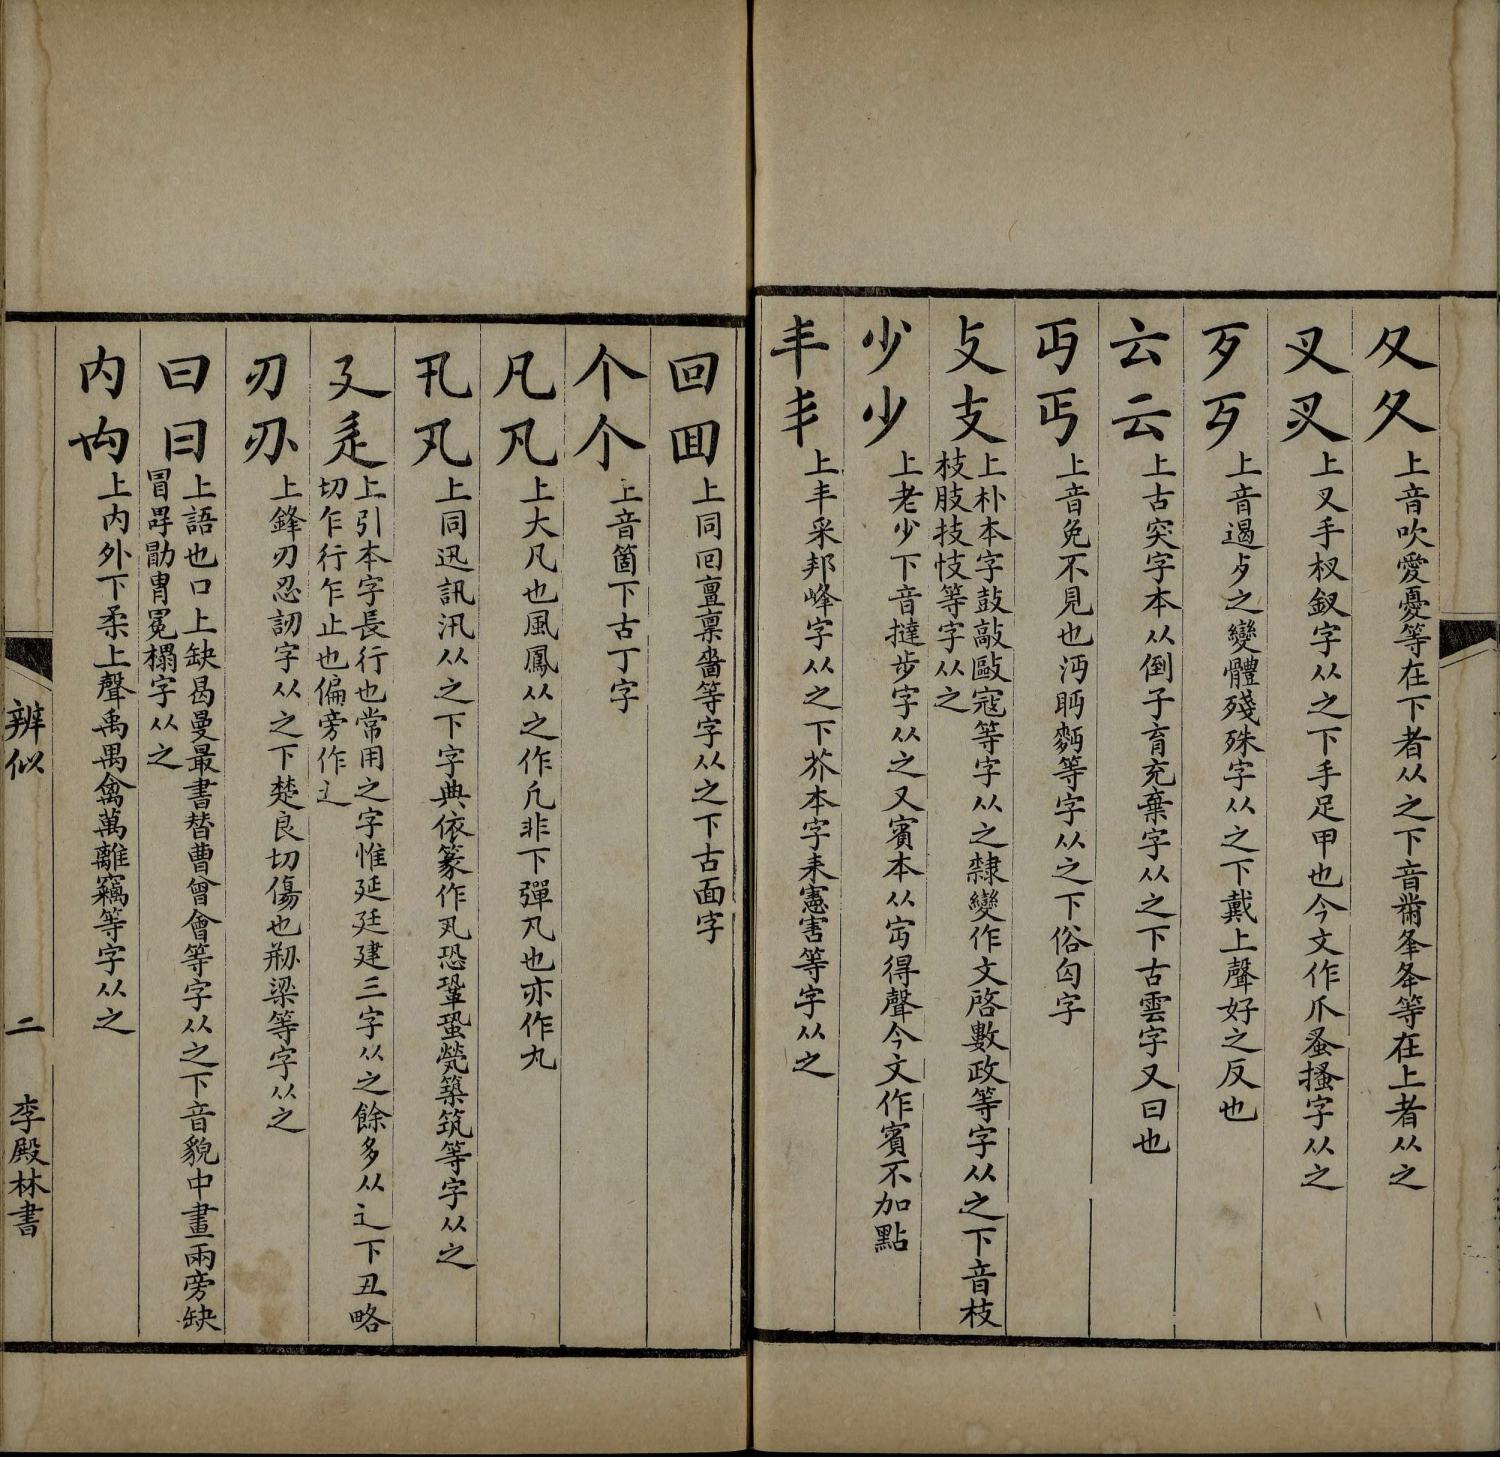 夊夂上音吹愛憂等在下者从之下音黹夆夅等在上者从之
叉㕚上叉手杈釵字从之下手足甲也今文作爪蚤搔字从之
歹歺上音遏歺之變體殘殊字从之下戴上聲好之反也
𠫓云上古突字本从倒子育充棄字从之下古雲字又曰也
丏丐上音免不見也沔眄麪等字从之下俗匃字
攴支上朴本字鼓敲敺寇等字从之隸變作文啓數政等字从之下音枝
枝肢技忮等字从之
少𣥂上老少下音撻步字从之又賓本从𡧍得聲今文作賓不加點
丰丯上丰采邦峰字从之下芥本字耒憲害等字从之
回囬上同囘亶稟嗇等字从之下古面字
个个上音箇下古丁字
凡凡上大凡也風鳳从之作凢非下彈凡也亦作丸
卂丮上同迅訊汛从之下字典依篆作丮恐鞏蛩甇築筑等字从之
廴辵上引本字長行也常用之字惟延廷建三字从之餘多从辶下丑略
切乍行乍止也偏旁作辶
刃刅上鋒刃忍訒字从之下楚良切傷也剏梁等字从之
曰冃上語也口上缺曷曼最書替曹曾會等字从之下音貌中畫兩旁缺
冒冔勖冑冕榻字从之
内禸上内外下柔上聲禹禺禽萬離竊等字从之
辨似
二
李殿林書